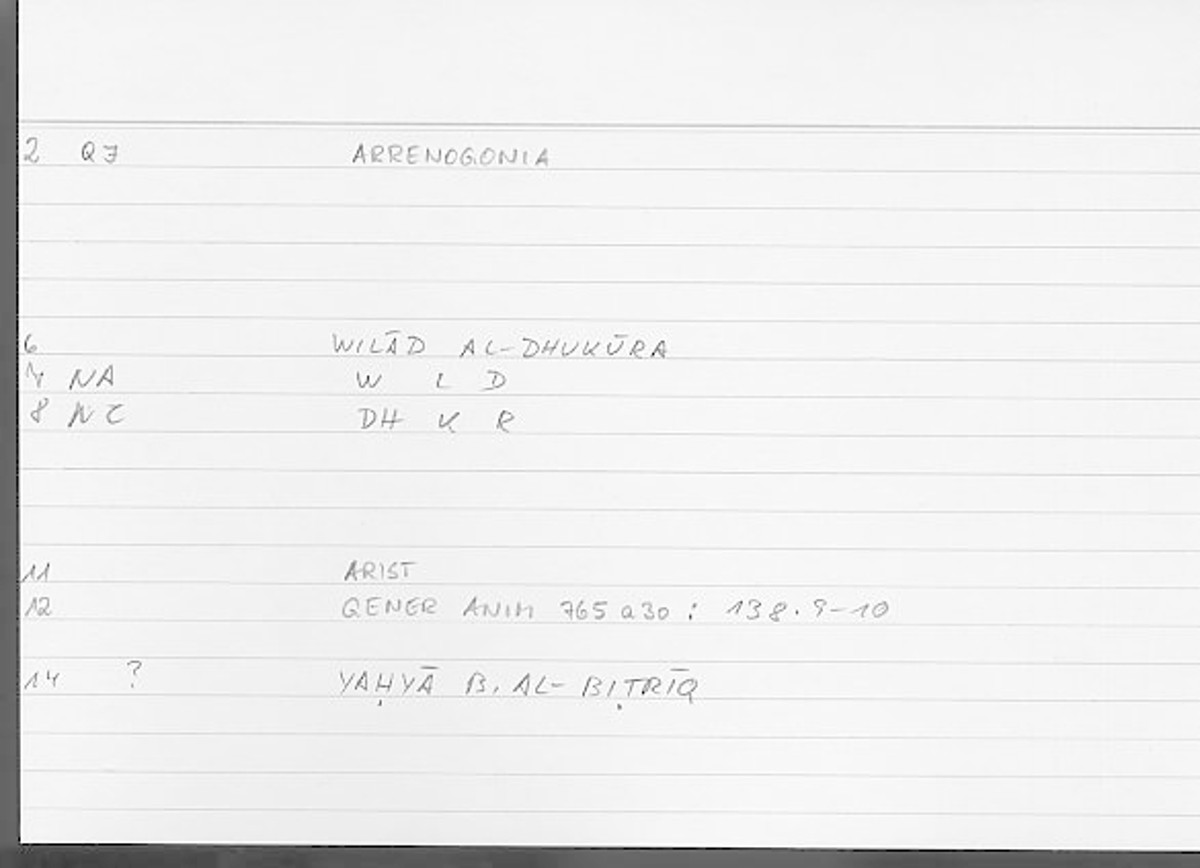 2 QJ ARRENOGONIA
6 WILĀD AL-DHUKŪRA
7 NA W L D
8 NC DH K R
11 ARIST
12 GENER ANIM 765 a30 : 138.9-10
14 ? YAḤYĀ B. AL-BIṬRĪQ